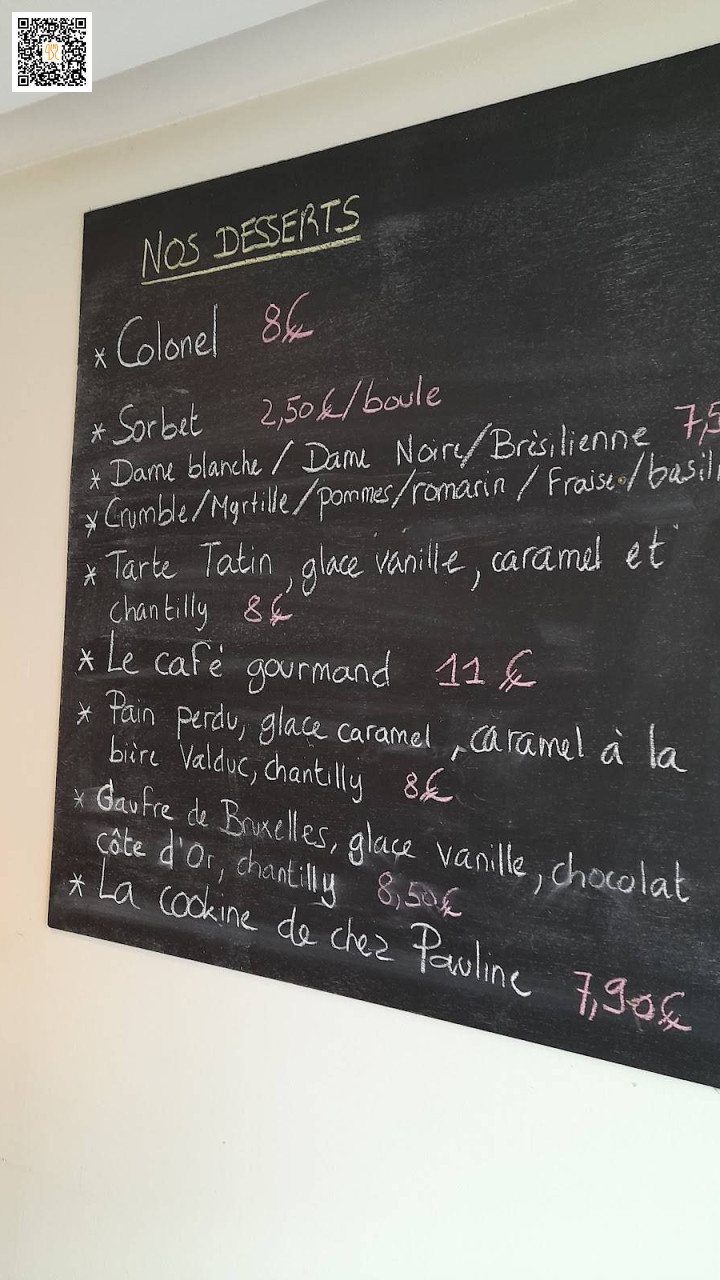 NOS DESSERTS
* Colonel 8€
* Sorbet 2,50€/boule
* Dame blanche / Dame Noire/Brésilienne
* Crumble/Myrtille/pommes/romarin / Fraise/
* Tarte Tatin, glace vanille, caramel et
chantilly 8€
* Le café gourmand 11€
* Pain perdu, glace caramel, caramel à la
bière Valduc, chantilly 8€
* Gaufre de Bruxelles, glace vanille, chocolat
côte d'Or, chantilly 8,50€
* La cookine de chez Pauline 7,90€